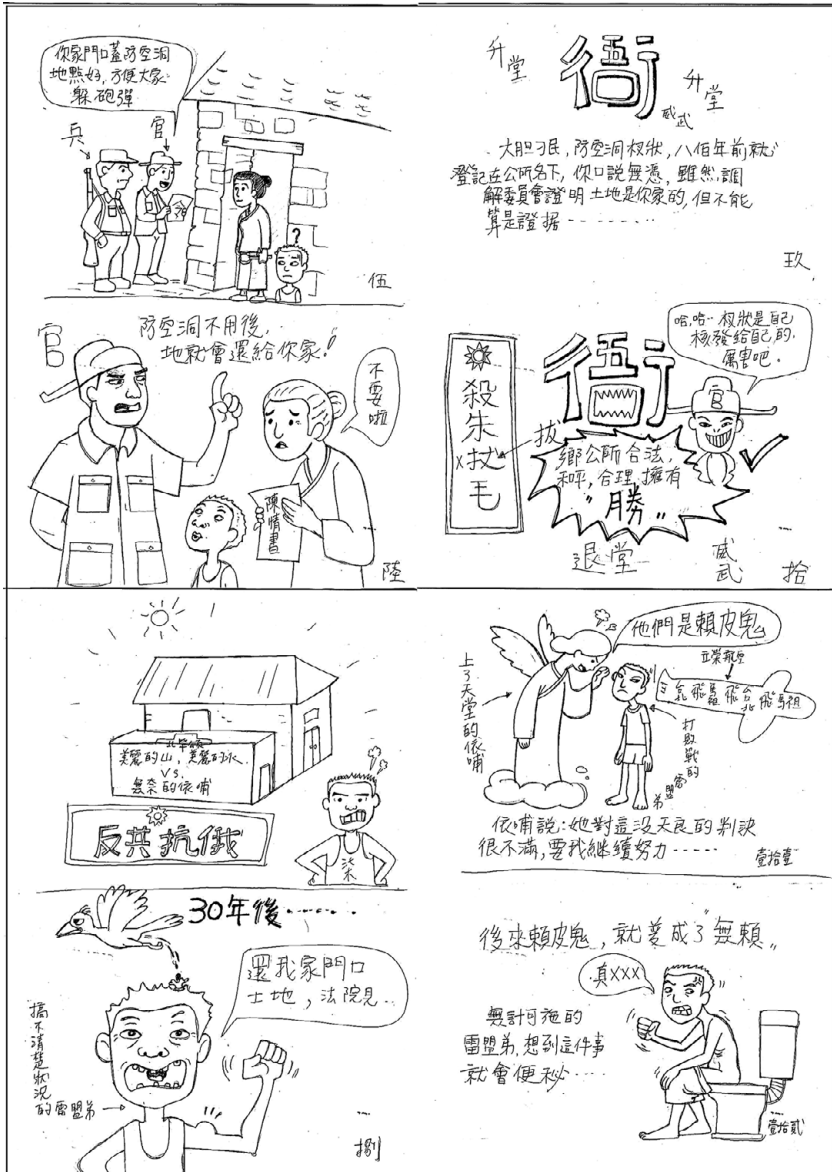 你家門口蓋防空洞
地點好，方便大家
躲砲彈
兵
官
?
伍
官
防空洞不用後，
地就會還給你家！
不要啦
陳情書
陸
美麗的山，美麗的水
VS.
無奈的依哺
反共抗俄
柒
30年後‥‥‥
還我家門口
土地，法院見‥
搞不清楚狀況
的雷盟弟
捌
升堂
衙
升堂
威武
大胆刁民，防空洞权狀，八佰年前就
登記在公所名下，你口說無憑，雖然調
解委員會證明土地是你家的，但不能
算是證据---------
玖
殺朱
拔
毛
衙
官
哈，哈‥权狀是自己
核發給自己的，
厲害吧。
鄉公所合法，
和平，合理擁有
"勝"
退堂
威武
拾
他們是賴皮鬼
上了天堂的依哺
立榮航空
打敗戰的
雷盟弟
依哺說：她對這沒天良的判訣
很不滿，要我繼續努力-----
壹拾壹
後來賴皮鬼，就變成了"無賴"
真XXX
無計可施的
雷盟弟，想到這件事
就會便秘‥‥
壹拾貳